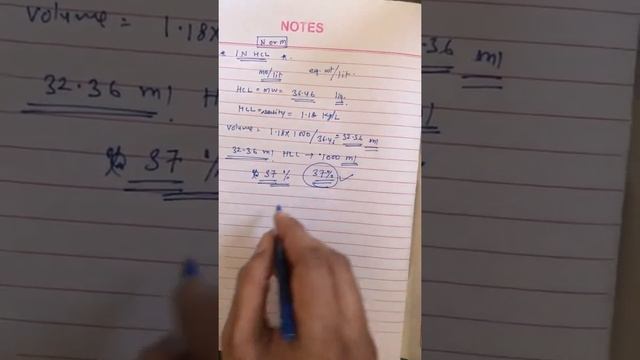 NOTES
N or M
1 N HCL
mo/lit eq. wt/lit.
HCL = MW = 36.46 liq.
HCL = density = 1.18 kg/L
Volume = 1.18x1000/36.46 = 32.36 ml
32.36 ml HCL → 1000 ml
37 % 37%